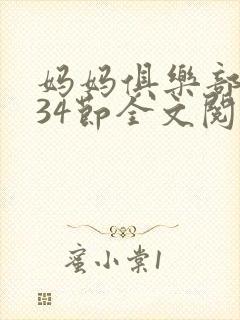 妈妈俱樂部
34節全文閱
蜜小棠1